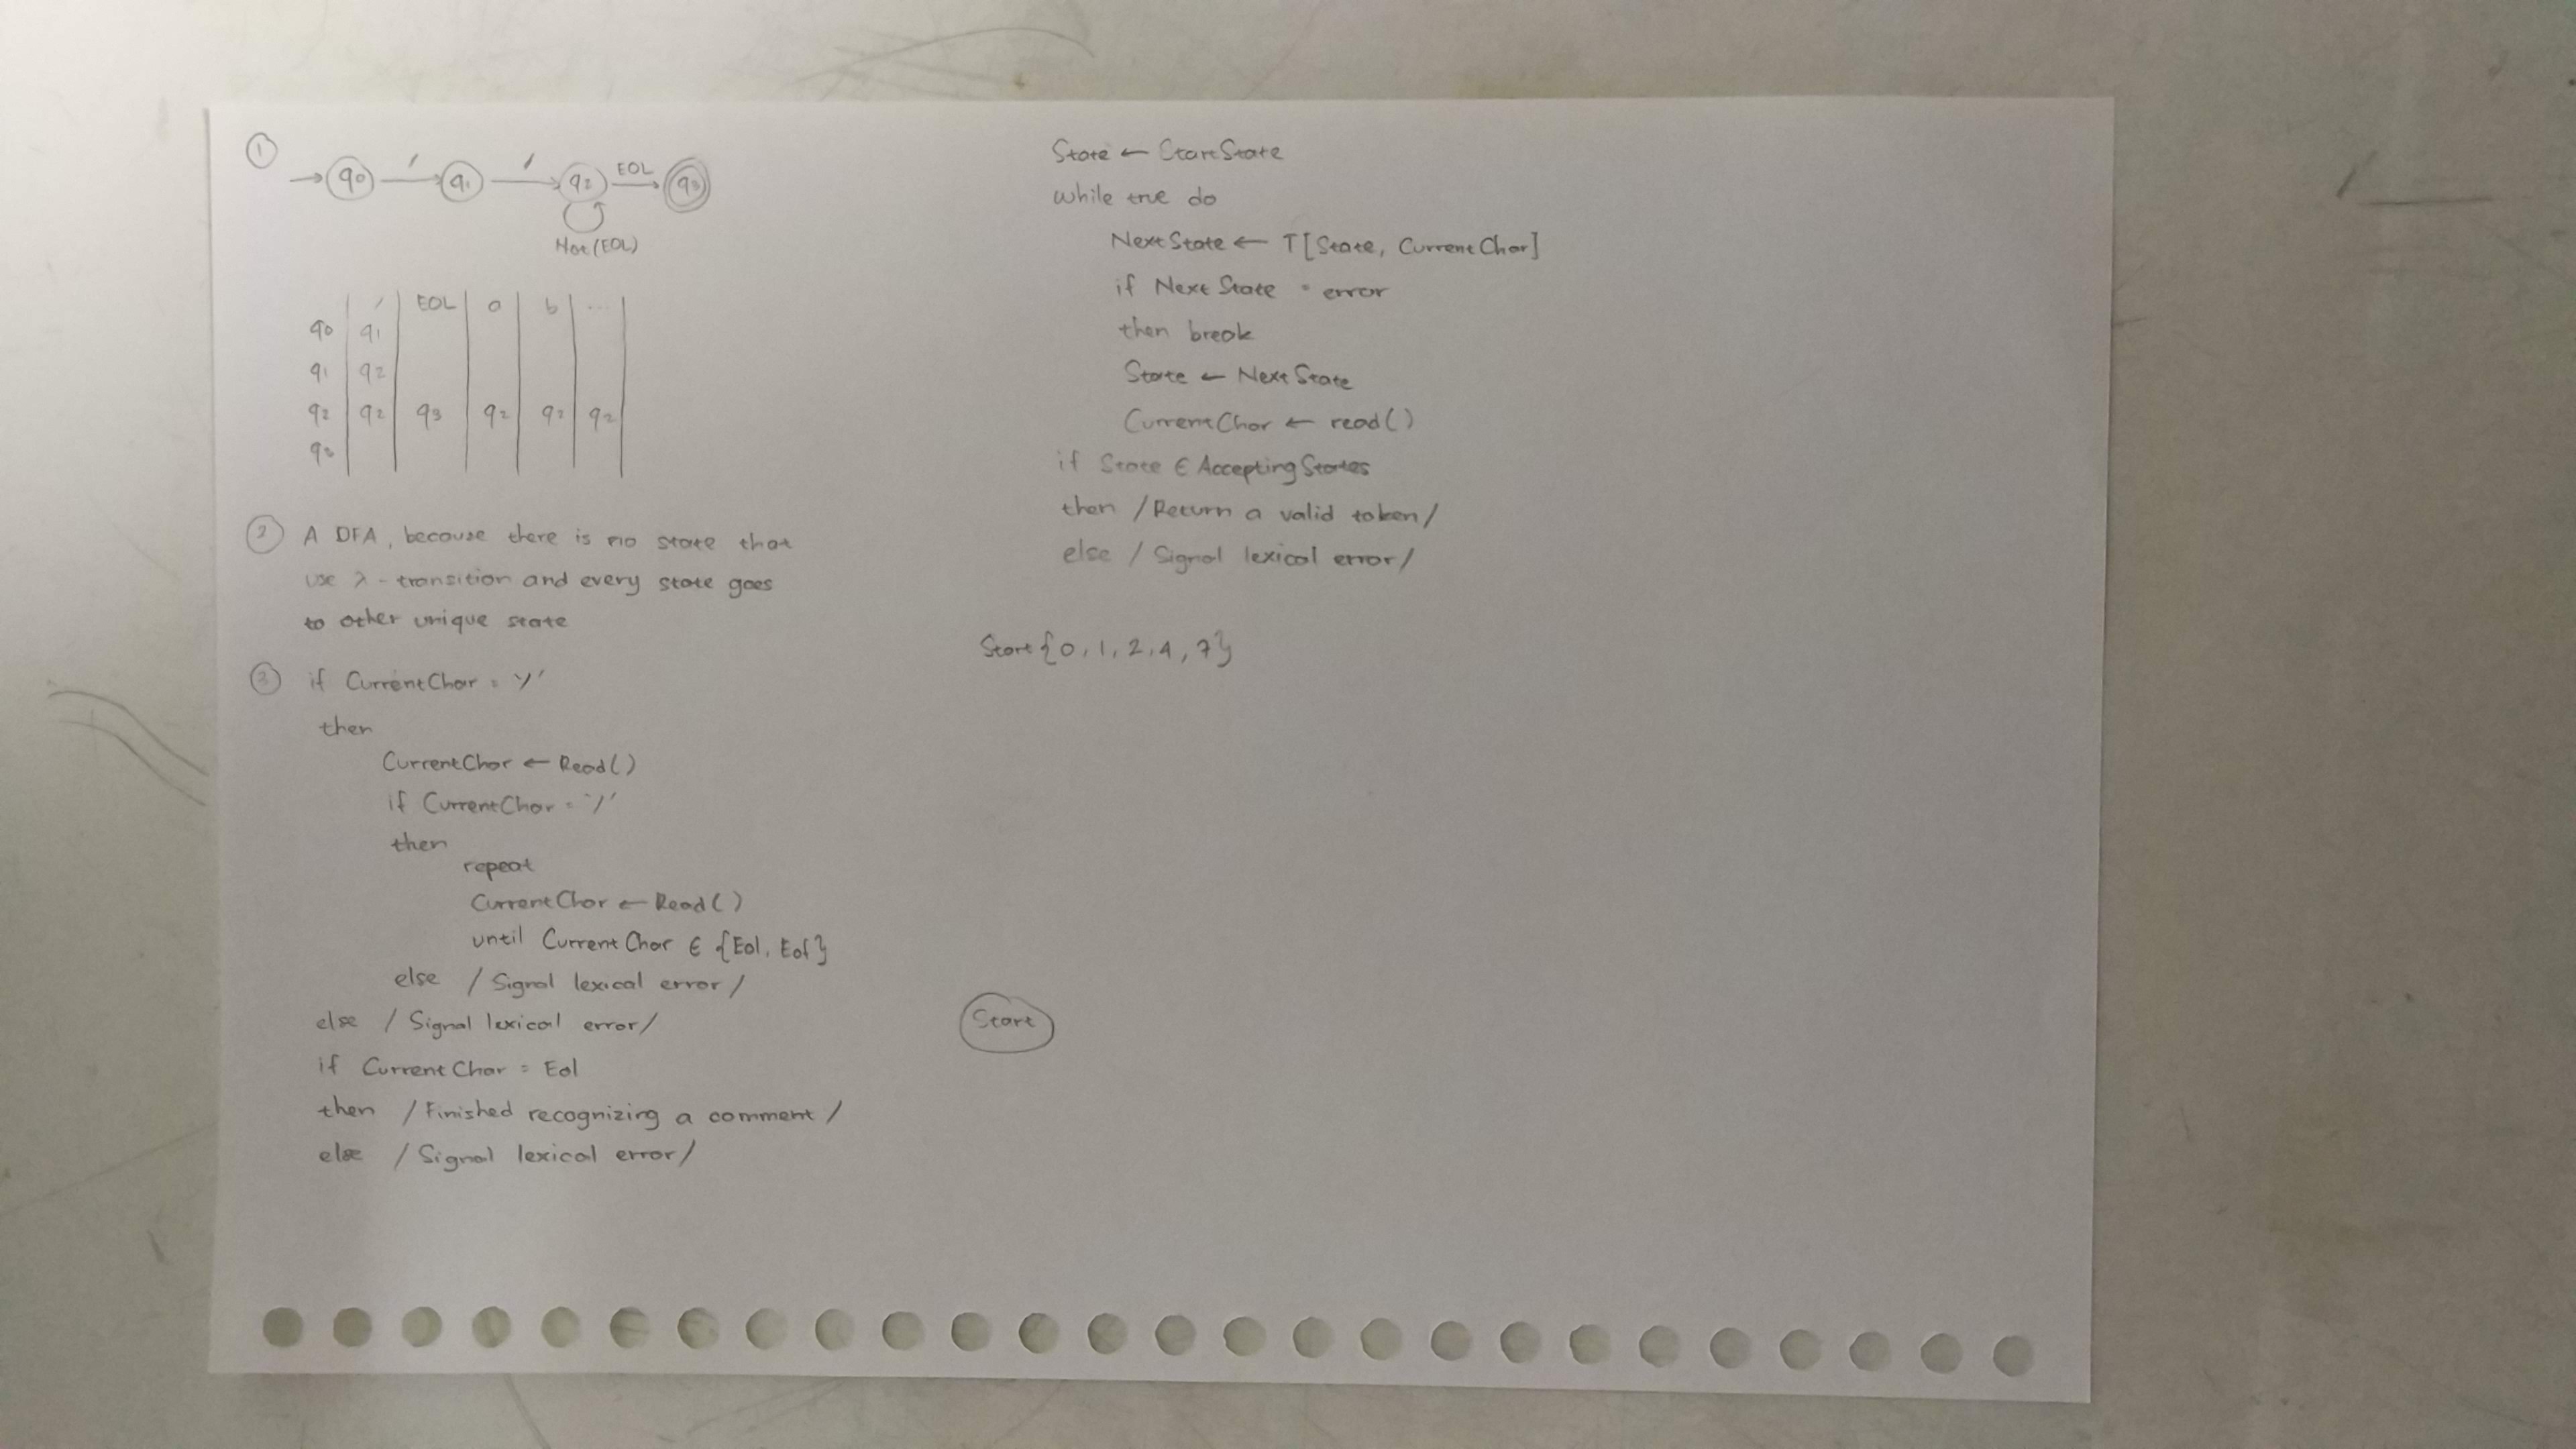 1
/ / EOL
q0 q1 q2 q3
Not(EOL)
/ EOL a b ...
q0 q1
q1 q2
q2 q2 q3 q2 q2 q2
q3
2 A DFA, because there is no state that
use λ-transition and every state goes
to other unique state
3 if CurrentChar = '/'
then
CurrentChar ← Read()
if CurrentChar = '/'
then
repeat
CurrentChar ← Read()
until CurrentChar ∈ {Eol, Eof}
else /Signal lexical error/
else /Signal lexical error/
if CurrentChar = Eol
then /Finished recognizing a comment/
else /Signal lexical error/
State ← StartState
while true do
NextState ← T[State, CurrentChar]
if NextState = error
then break
State ← NextState
CurrentChar ← read()
if State ∈ AcceptingStates
then /Return a valid token/
else /Signal lexical error/
Start{0,1,2,4,7}
Start